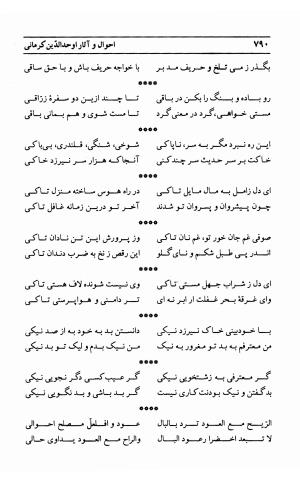 ۷۹۰ احوال و آثار اوحدالدّین کرمانی
بگذر ز می تلخ و حریف مد بر با خواجه حریف باش و با حق ساقی
****
رو باده و بنگ را بکن در باقی تا چند ازین دو سفرهٔ زرّاقی
مستی خواهی، گرد در معنی گرد تا مست شوی و هم بمانی باقی
****
این ره نبرد مگر به سر، ناپاکی شوخی، شنگی، قلندری، بی‌باکی
خاکت بر سر حدیث سر چندکنی آنجاکه هزار سر نیرزد خاکی
****
ای دل زامل به مال مایل تاکی در راه هوس ساخته منزل تاکی
چون پیشروان و پسروان تو شدند آخر تو درین زمانه غافل تاکی
****
صوفی غم جان خور تو، غم نان تاکی وز پرورش این تن نادان تاکی
اندر پی طبل شکم و نای گلو این رقص ز نخ به ضرب دندان تاکی
****
ای دل ز شراب جهل مستی تاکی وی نیست شونده لاف هستی تاکی
وای غرقهٔ بحر غفلت ار ابر نه ای تر دامنی و هواپرستی تاکی
****
با خودبینی خاک نیرزد نیکی دانستن بد به خود به از صد نیکی
من معترفم به بد تو مغرور به نیک من نیک بدم و لیک تو بد نیکی
****
گر معترفی به زشتخویی نیکی گر عیب کسی دگر نجویی نیکی
بدگفتن و نیک بودنت کاری نیست گر بد باشی و بد نگویی نیکی
****
الریح مع العود ترد بالبال عود و اقلعلّ مصلح احوالی
لا تبعد اخضرا رعود البال والراح مع العود یداوی حالی